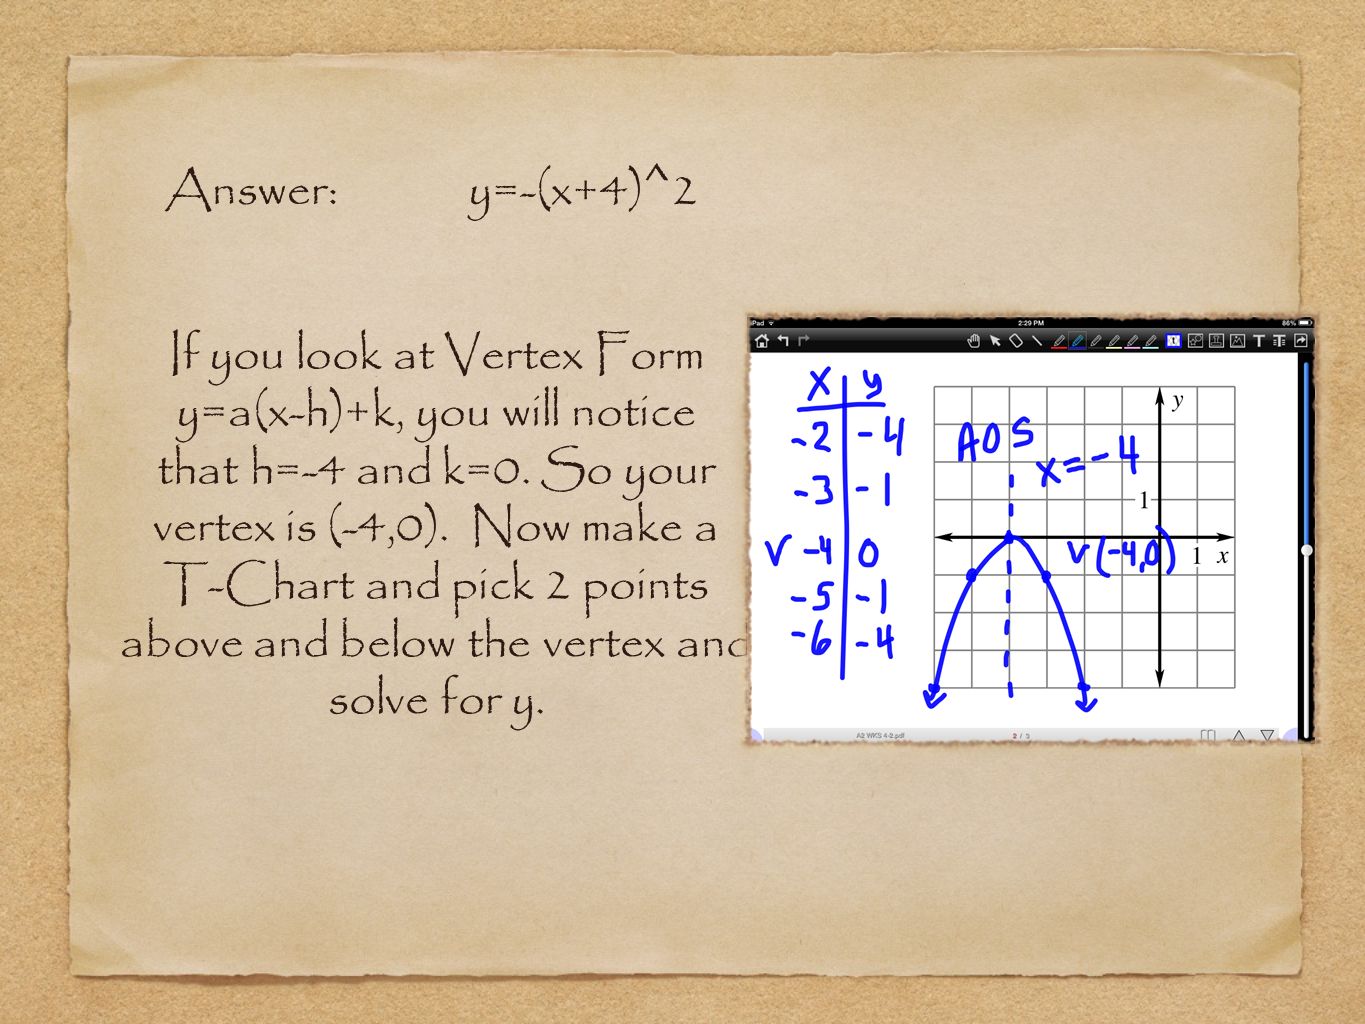 Answer: y=-(x+4)^2
If you look at Vertex Form
y=a(x-h)+k, you will notice
that h=-4 and k=0. So your
vertex is (-4,0). Now make a
T-Chart and pick 2 points
above and below the vertex and
solve for y.
iPad 2:29 PM 86%
x y
-2 -4
-3 -1
V -4 0
-5 -1
-6 -4
AOS
x=-4
y
1
V(-4,0)
1 x
A2 WKS 4-2.pdf 2 / 3